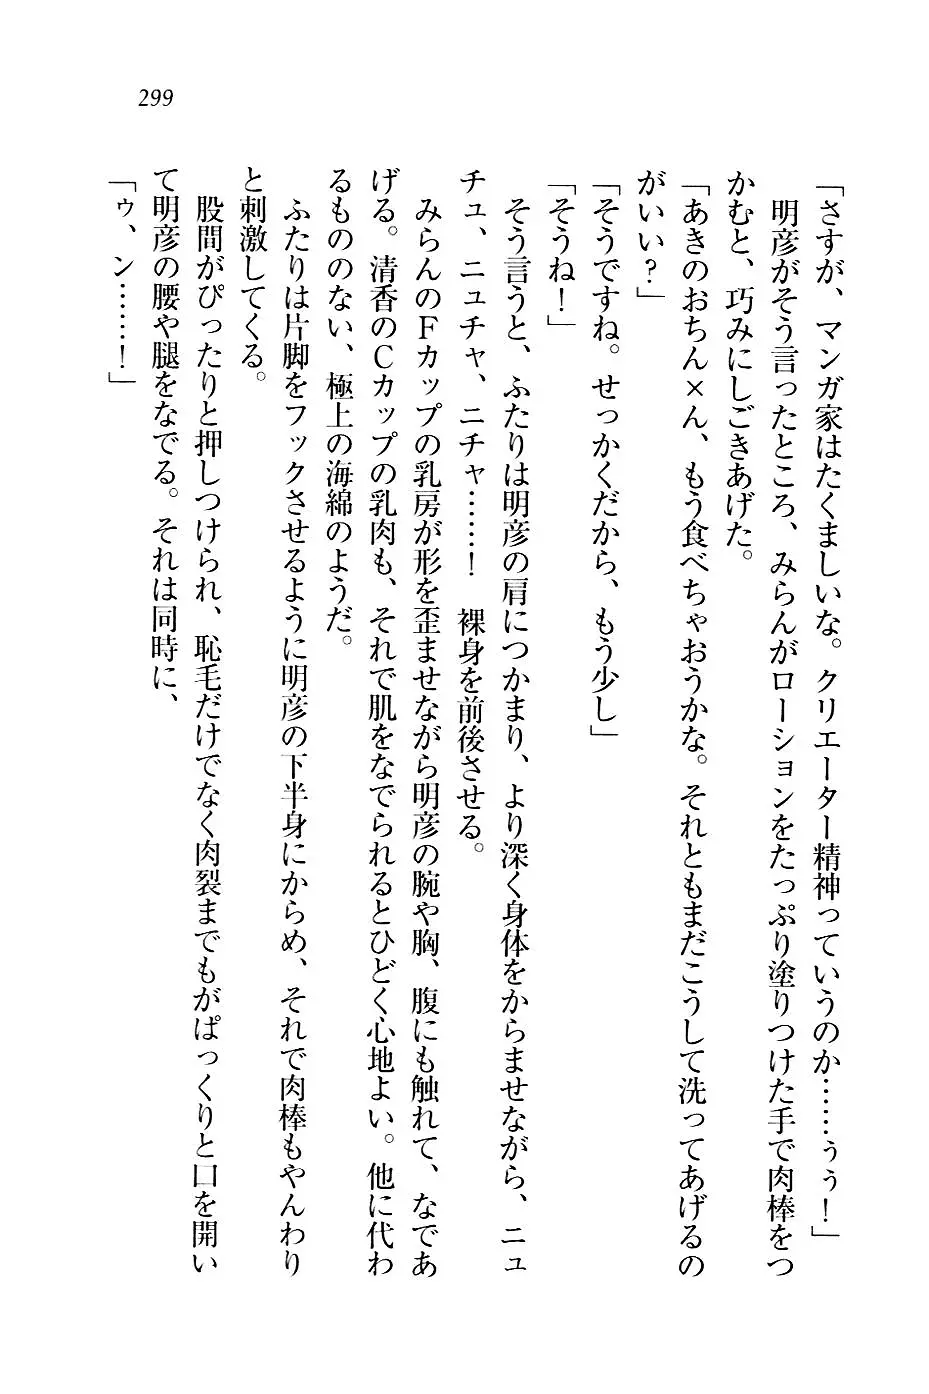 299
「さすが、マンガ家はたくましいな。クリエーター精神っていうのか……ぅぅ！」
明彦がそう言ったところ、みらんがローションをたっぷり塗りつけた手で肉棒をつ
かむと、巧みにしごきあげた。
「あきのおちん×ん、もう食べちゃおうかな。それともまだこうして洗ってあげるの
がいい？」
「そうですね。せっかくだから、もう少し」
「そうね！」
そう言うと、ふたりは明彦の肩につかまり、より深く身体をからませながら、ニュ
チュ、ニュチャ、ニチャ……！　裸身を前後させる。
みらんのFカップの乳房が形を歪ませながら明彦の腕や胸、腹にも触れて、なであ
げる。清香のCカップの乳肉も、それで肌をなでられるとひどく心地よい。他に代わ
るもののない、極上の海綿のようだ。
ふたりは片脚をフックさせるように明彦の下半身にからめ、それで肉棒もやんわり
と刺激してくる。
股間がぴったりと押しつけられ、恥毛だけでなく肉裂までもがぱっくりと口を開い
て明彦の腰や腿をなでる。それは同時に、
「ゥ、ン……！」